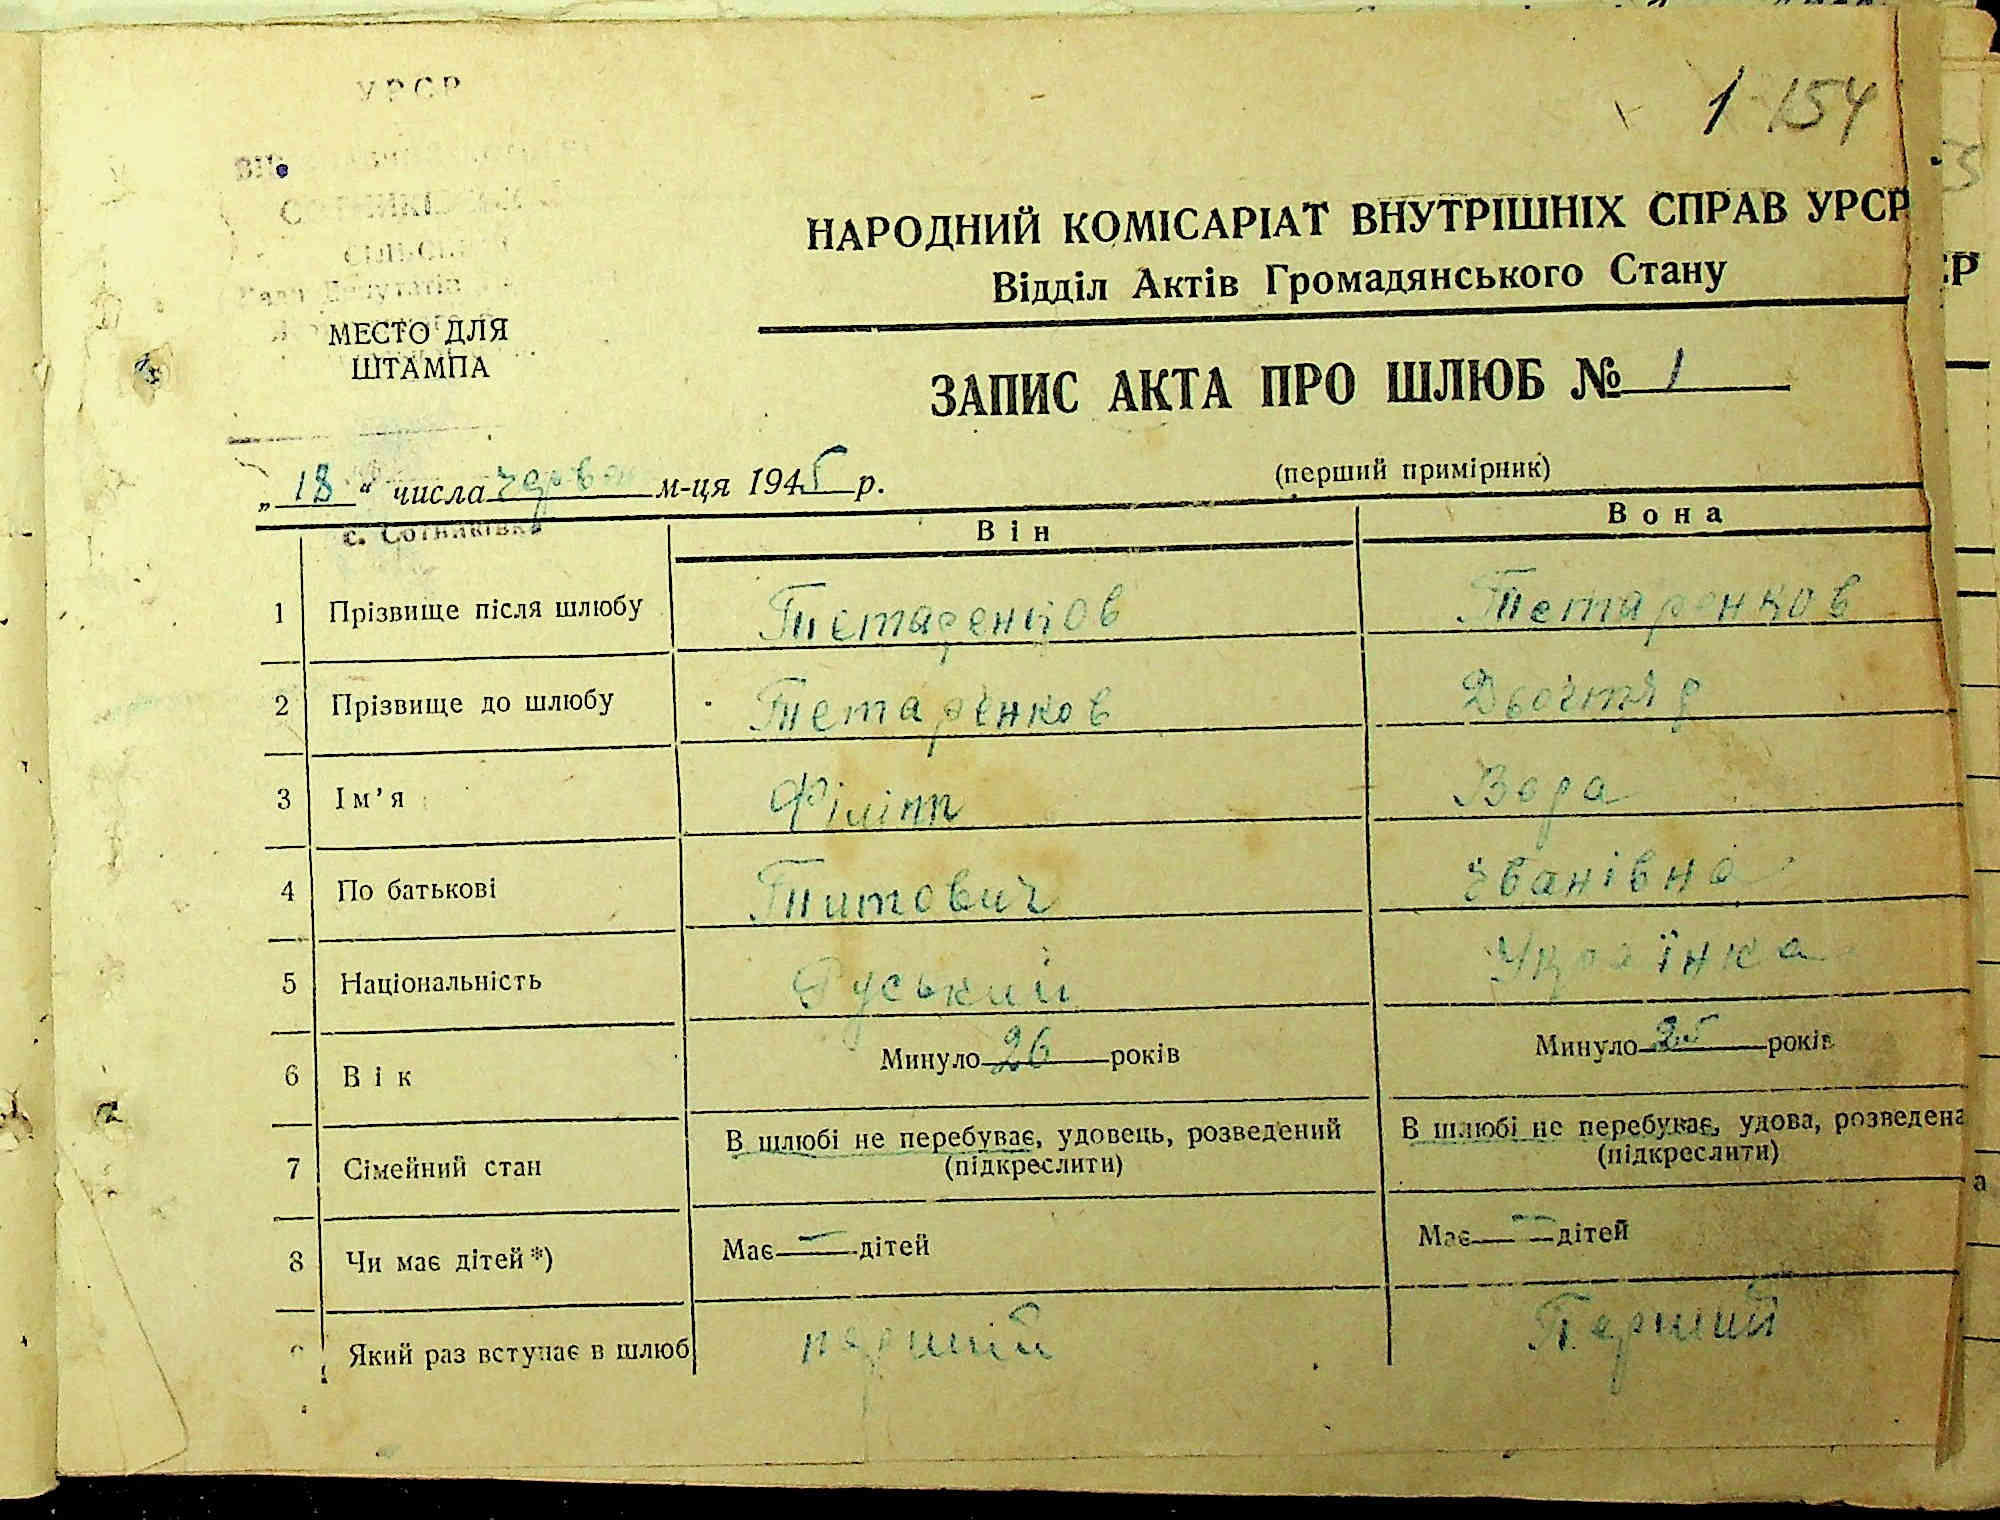 УРСР
1 154
НАРОДНИЙ КОМІСАРІАТ ВНУТРІШНІХ СПРАВ УРСР
Відділ Актів Громадянського Стану
МЕСТО ДЛЯ
ШТАМПА
ЗАПИС АКТА ПРО ШЛЮБ № 1
(перший примірник)
„ 18 “ числа червон м-ця 1945 р.
с. Сотниківка
Він Вона
1 Прізвище після шлюбу Тетаренков Тетаренков
2 Прізвище до шлюбу Тетаренков
3 Ім’я Філіпп Вера
4 По батькові Титович Іванівна
5 Національність Руський Українка
6 Вік Минуло 26 років Минуло 25 років
7 Сімейний стан В шлюбі не перебуває, удовець, розведений (підкреслити) В шлюбі не перебуває, удова, розведена (підкреслити)
8 Чи має дітей *) Має — дітей Має — дітей
Який раз вступає в шлюб перший Перший